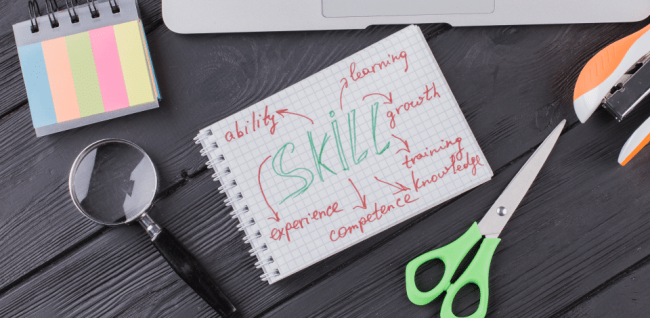 learning
ability
growth
SKILL
training
knowledge
experience
competence